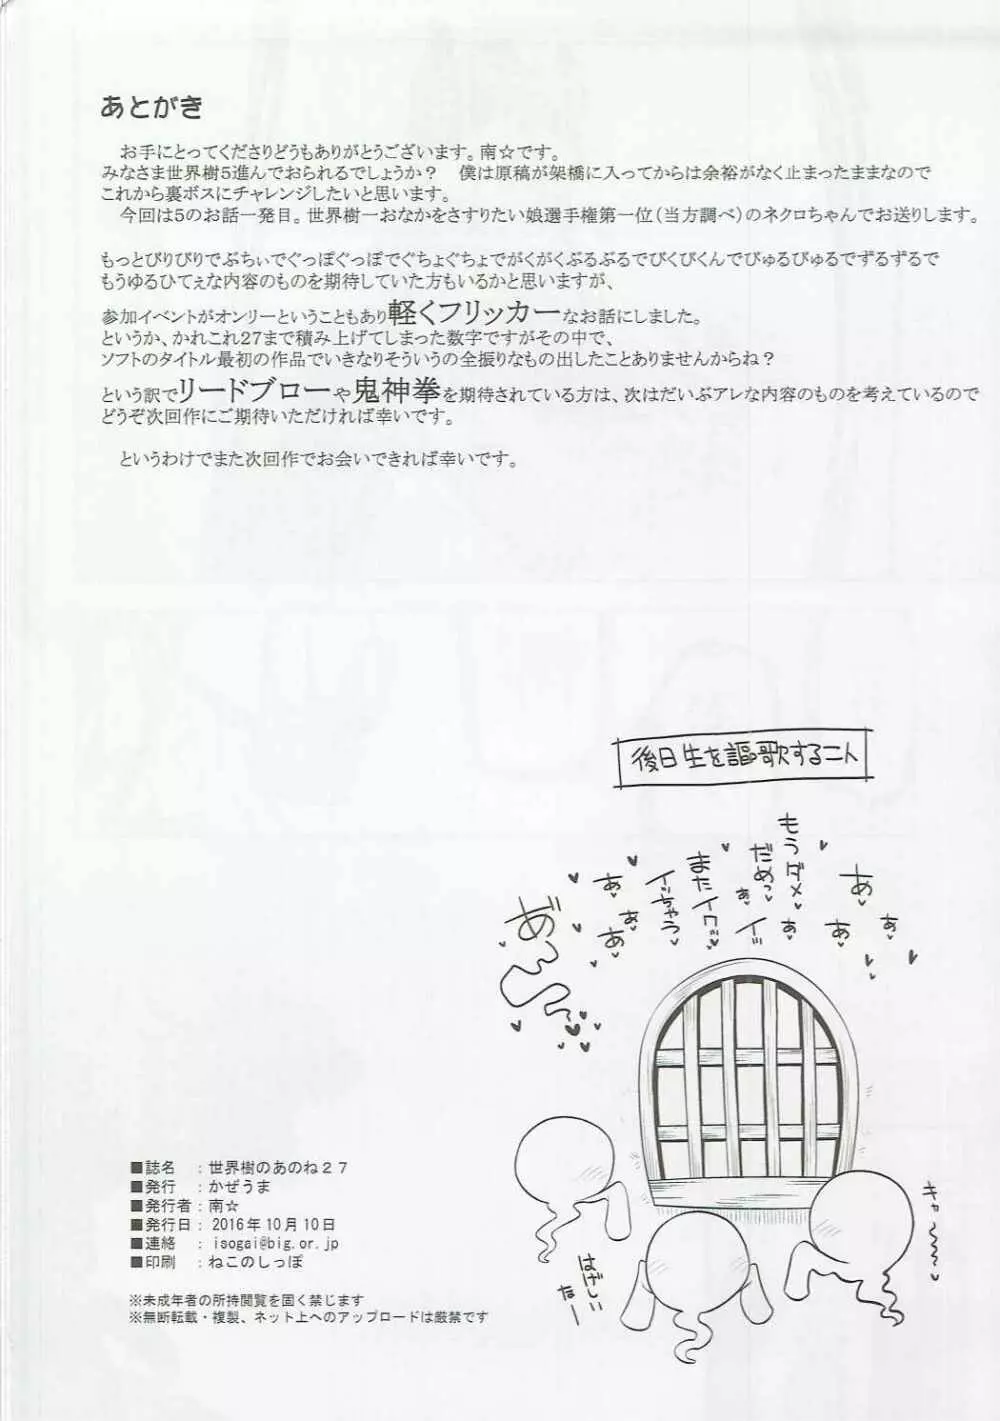 あとがき
お手にとってくださりどうもありがとうございます。南☆です。
みなさま世界樹5進んでおられるでしょうか？　僕は原稿が架橋に入ってからは余裕がなく止まったままなので
これから裏ボスにチャレンジしたいと思います。
今回は5のお話一発目。世界樹一おなかをさすりたい娘選手権第一位（当方調べ）のネクロちゃんでお送りします。
もっとびりびりでぶちぃでぐっぽぐっぽでぐちょぐちょでがくがくぶるぶるでびくびくんでびゅるびゅるでずるずるで
もうゆるひてぇな内容のものを期待していた方もいるかと思いますが、
参加イベントがオンリーということもあり軽くフリッカーなお話にしました。
というか、かれこれ27まで積み上げてしまった数字ですがその中で、
ソフトのタイトル最初の作品でいきなりそういうの全振りなもの出したことありませんからね？
という訳でリードブローや鬼神拳を期待されている方は、次はだいぶアレな内容のものを考えているので
どうぞ次回作にご期待いただければ幸いです。
というわけでまた次回作でお会いできれば幸いです。
後日生を謳歌する二人
あ♥
ぁ♥
あ♥
もうダメ♥
ぁ♥
だめっ♥
ぁ♥
イッ
またイクッ♥
イッちゃう♥
ぁ♥
ぁ♥
あ♥
キャ〜
はげしい
なー
■誌名　：世界樹のあのね２７
■発行　：かぜうま
■発行者：南☆
■発行日：2016年10月10日
■連絡　：isogai@big.or.jp
■印刷　：ねこのしっぽ
※未成年者の所持閲覧を固く禁じます
※無断転載・複製、ネット上へのアップロードは厳禁です